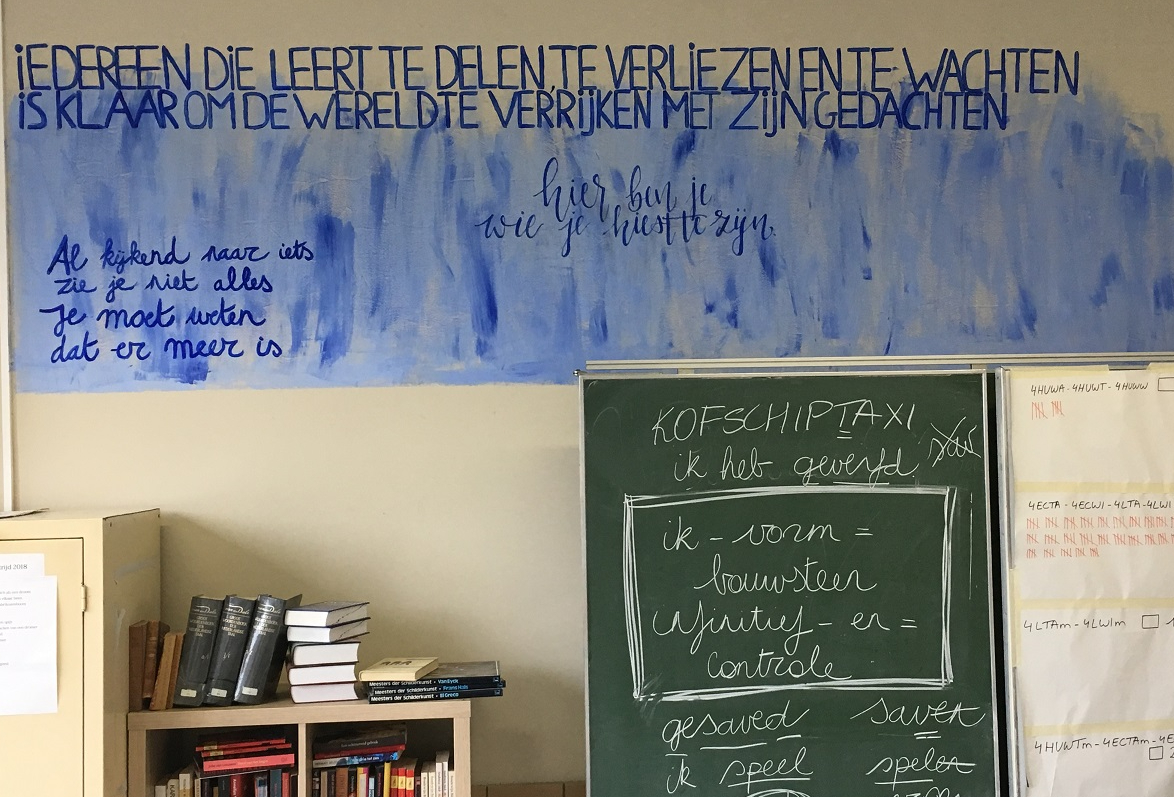 iEDEREEN DiE LEERT TE DELEN, TE VERLiEZEN EN TE WACHTEN
iS KLAAR OM DE WERELD TE VERRiJKEN MET ZiJN GEDACHTEN
hier ben je
wie je kiest te zijn.
Al kijkend naar iets
zie je niet alles
Je moet weten
dat er meer is
KOFSCHIPTAXI
ik heb geverfd.
ik-vorm =
bouwsteen
infinitief - en =
Controle
gesaved saven
ik speel spelen
4HUWA - 4HUWT - 4HUWW
4ECTA - 4ECWI - 4LTA - 4LWI
4LTAm - 4LWIm
4HUWTm - 4ECTAm - 4E
tijd 2018
Meesters der Schilderkunst - Van Eyck
Meesters der Schilderkunst - Frans Hals
Meesters der Schilderkunst - El Greco